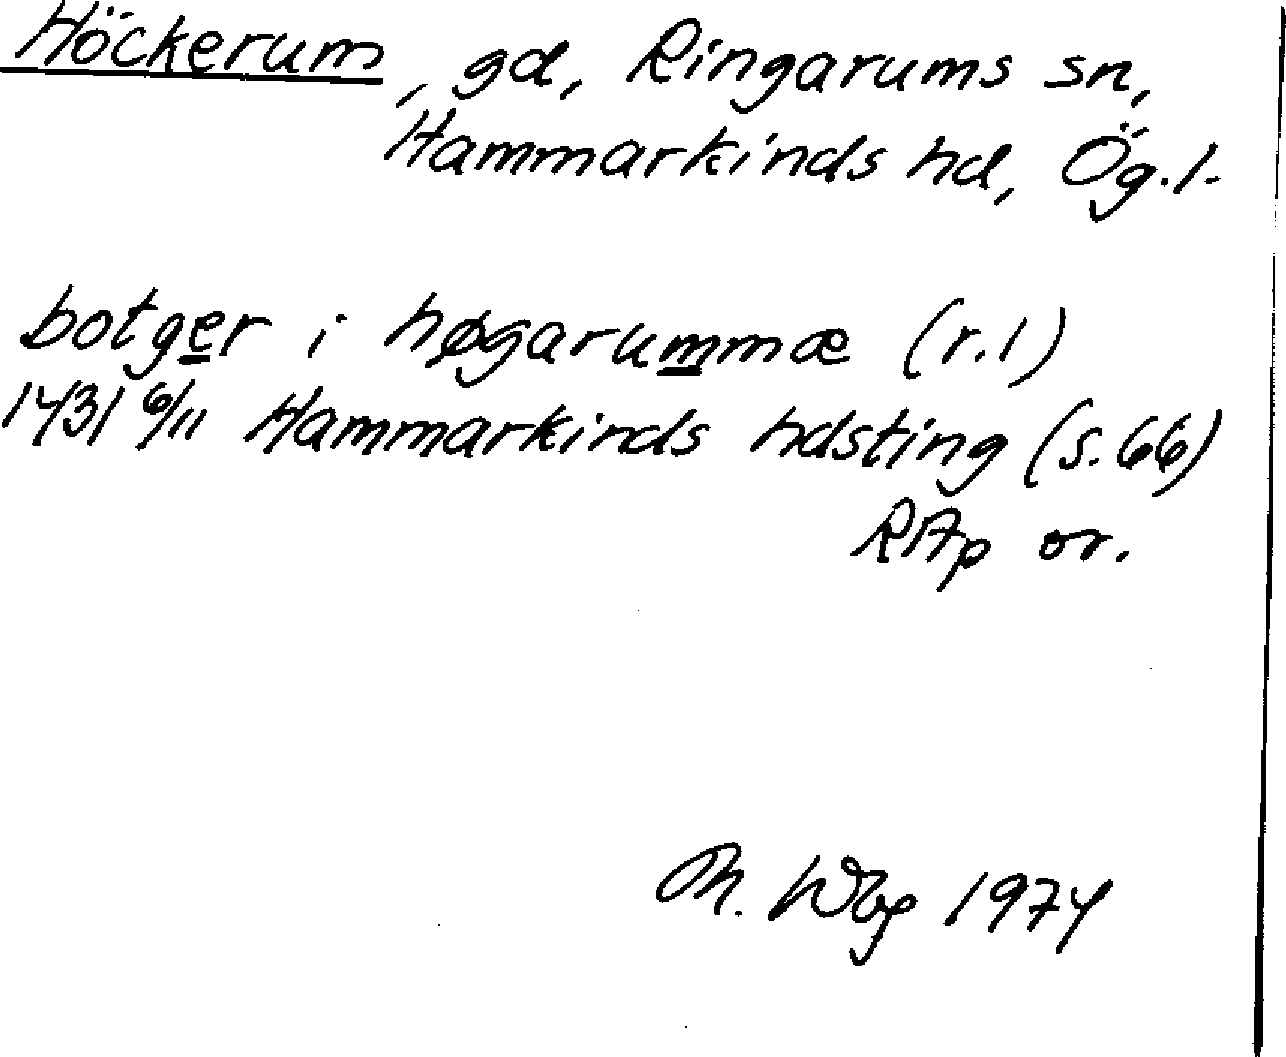 Höckerum, gd, Ringarums sn,
Hammarkinds hd, Ög.l.
botger i høgarummæ (r.1)
1431 6/11 Hammarkinds hdsting (s.66)
RAp or.
Th. Wbg 1974